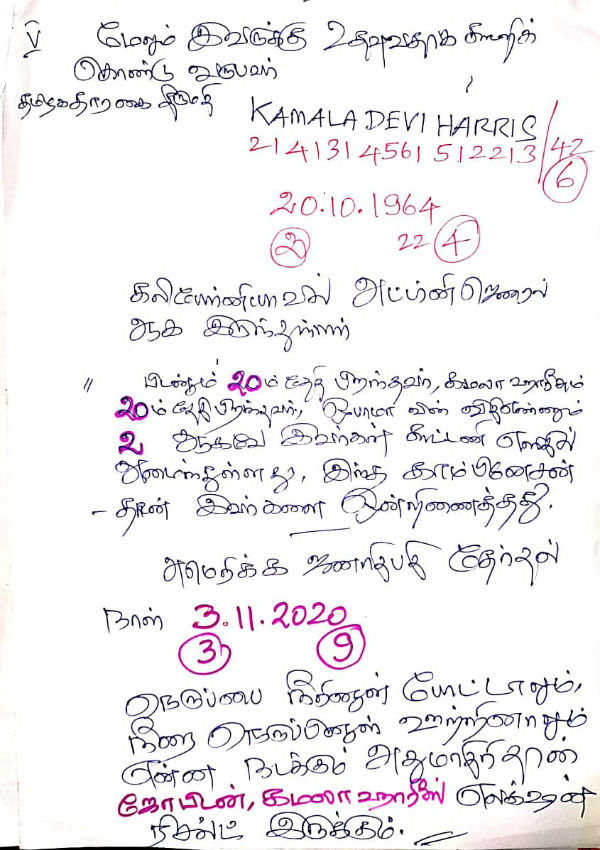 V மேலும் இவருக்கு உதவுவதாக கூறிக்
கொண்டு வருபவர்
தமிழகதாரகை திருமதி
KAMALA DEVI HARRIS
214131 4561 512213/42
6
20.10.1964
2 22 4
கலிபோர்னியாவில் அட்டர்னி ஜெனரல்
ஆக இருந்துள்ளார்
" பிடனும் 20ம் தேதி பிறந்தவர், கமலா ஹாரிசும்
20ம் தேதி பிறந்தவர், ஒபாமா வின் விதிஎண்ணும்
2 ஆகவே இவர்கள் கூட்டணி எளிதில்
அமைந்துள்ளது, இந்த காம்பினேசன்
- தான் இவர்களை ஒன்றிணைத்தது.
அமெரிக்க ஜனாதிபதி தேர்தல்
நாள் 3.11.2020
3 9
நெருப்பை நீரினுள் போட்டாலும்,
நீரை நெருப்பினுள் ஊற்றினாலும்
என்ன நடக்கும் அதுமாதிரிதான்
ஜோபிடன், கமலா ஹாரீஸ் எலக்ஷன்
ரிசல்ட் இருக்கும்.